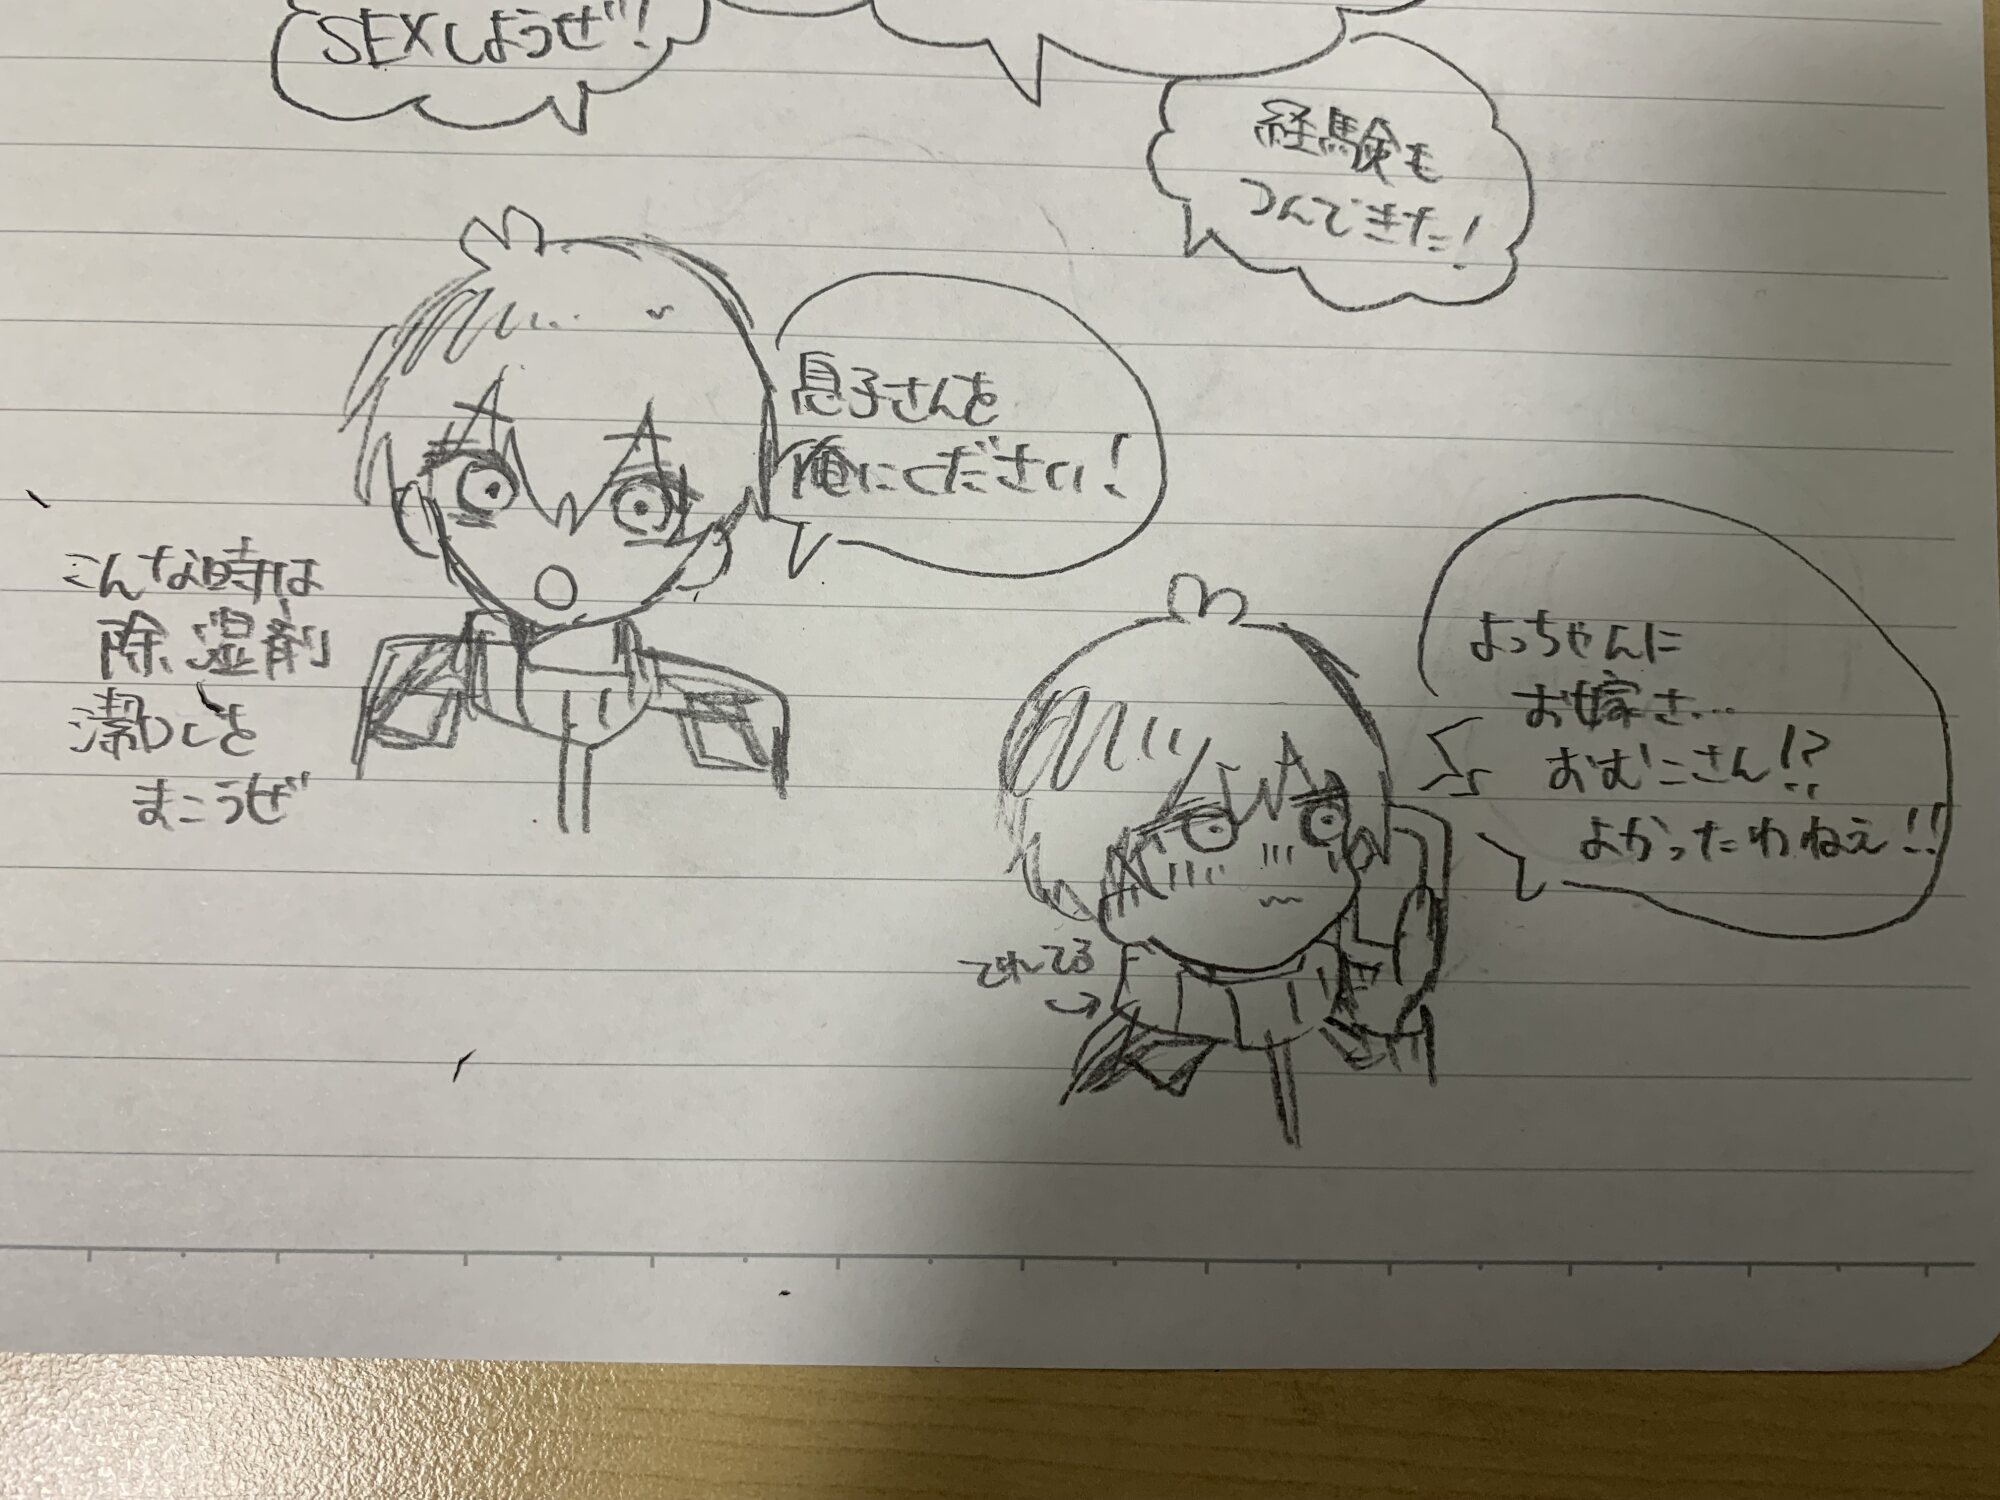 SEXしようぜ!
経験も
つんできた!
息子さんを
俺にください!
こんな時は
除湿剤
まこうぜ
よっちゃんに
お嫁さ…
おむこさん!?
よかったわねえ!!
てれてる